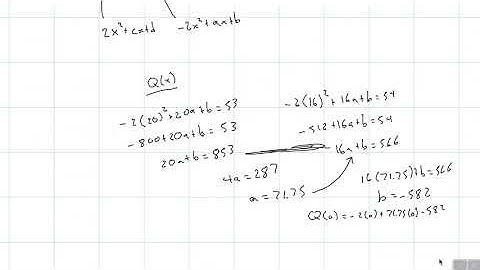 2x²+cx+d
-2x²+ax+b
Q(x)
-2(20)²+20a+b=53
-800+20a+b=53
20a+b=853
-2(16)²+16a+b=54
-512+16a+b=54
16a+b=566
4a=287
a=71.75
16(71.75)+b=566
b=-582
Q(0)=-2(0)+71.75(0)-582